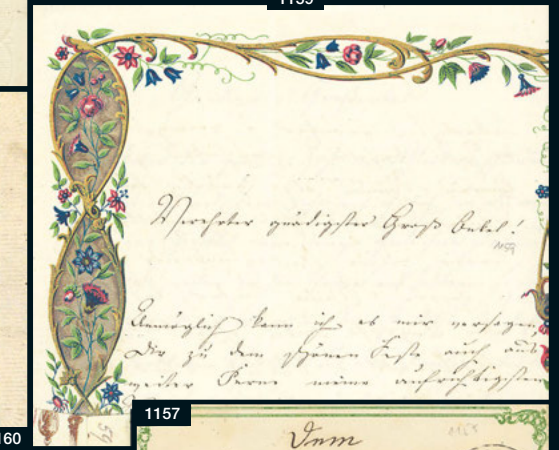 1159
Verehrter gnädigster Groß Onkel!
1159
Unmöglich kann ich es mir versagen,
Dir zu dem schönen Feste auch aus
weiter Ferne meine aufrichtigsten
1157
Dem
160